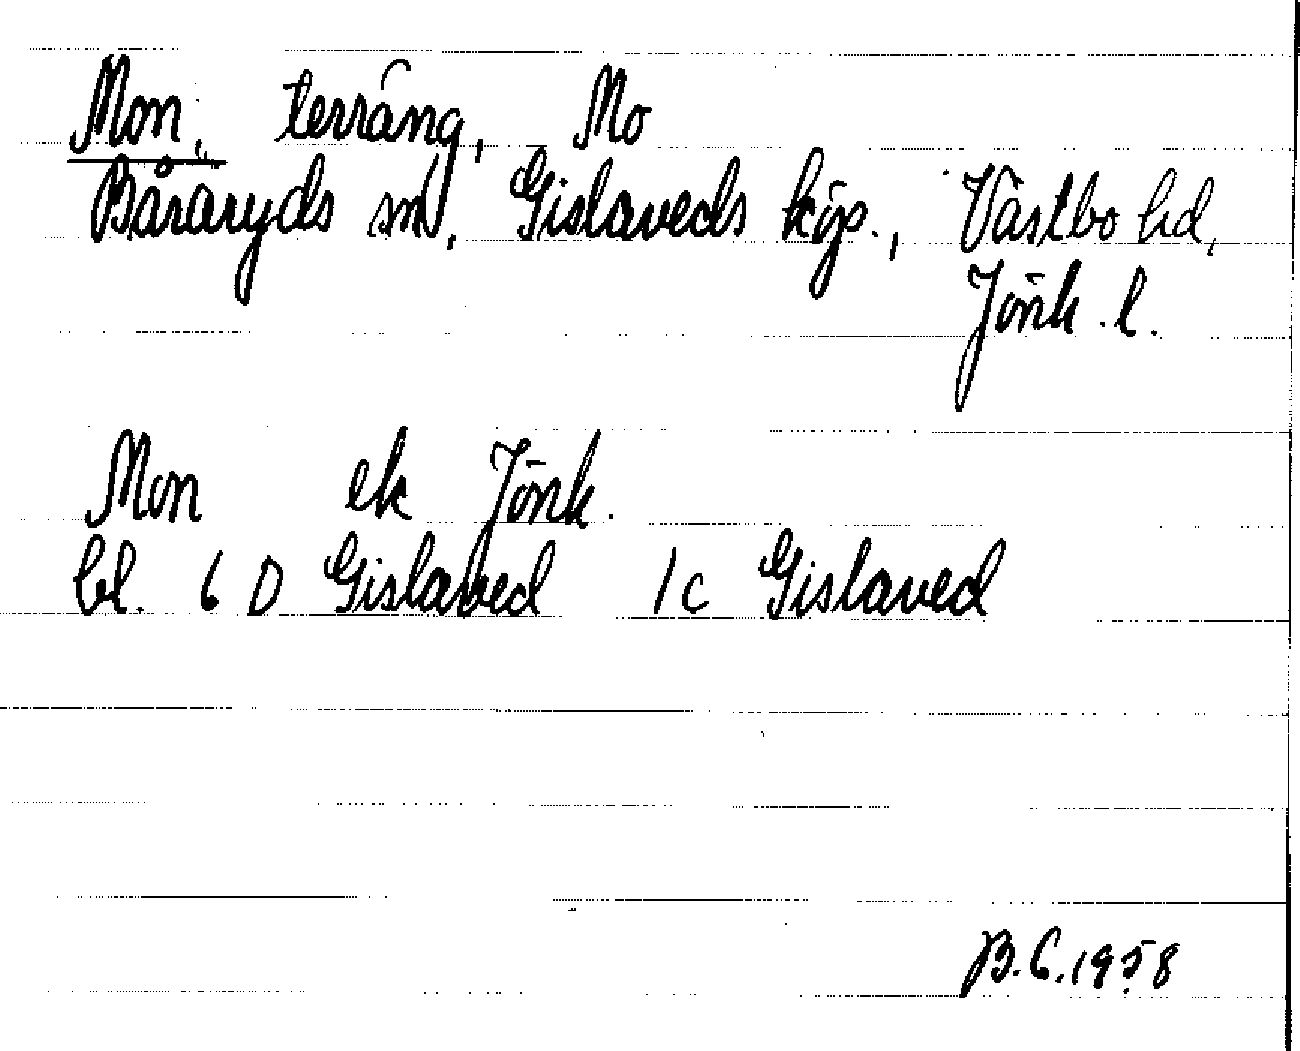 Mon, terräng, Mo
Båraryds sn, Gislaveds köp., Västbo hd,
Jönk. l.
Mon ek Jönk.
bl. 6 D Gislaved 1 c Gislaved
B.G. 1958